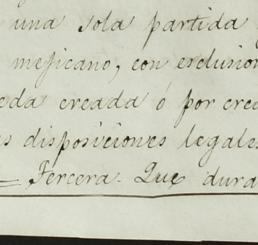 una sola partida
mejicano, con exclusion
eda creada ó por crea
s disposiciones legales
= Tercera. Que dura